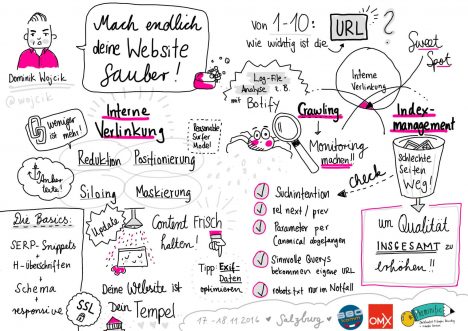 Mach endlich
deine Website
sauber!
Dominik Wojcik
@wojcik
Von 1-10:
Wie wichtig ist die
URL
?
Sweet
Spot
Interne
Verlinkung
Log-File-
Analyse z.B.
mit Botify
Crawling
Index-
management
Monitoring
machen!!
Schlechte
Seiten
Weg!
um Qualität
INSGESAMT zu
erhöhen!!
check
Suchintention
rel next / prev
Parameter per
Canonical abgefangen
Sinnvolle Querys
bekommen eigene URL
robots.txt nur im Notfall
weniger
ist mehr!
Interne
Verlinkung
Reasonable
Surfer
Model
Reduktion
Positionierung
Anker
texte!
Siloing
Maskierung
Die Basics:
SERP-Snippets
+
H-Überschriften
+
Schema
+
responsive
SSL
Update
Content Frisch
halten!
Deine Website ist
Dein Tempel
Tipp: Exif-
Daten
optimieren
17-18.11.2016
Salzburg
OMX